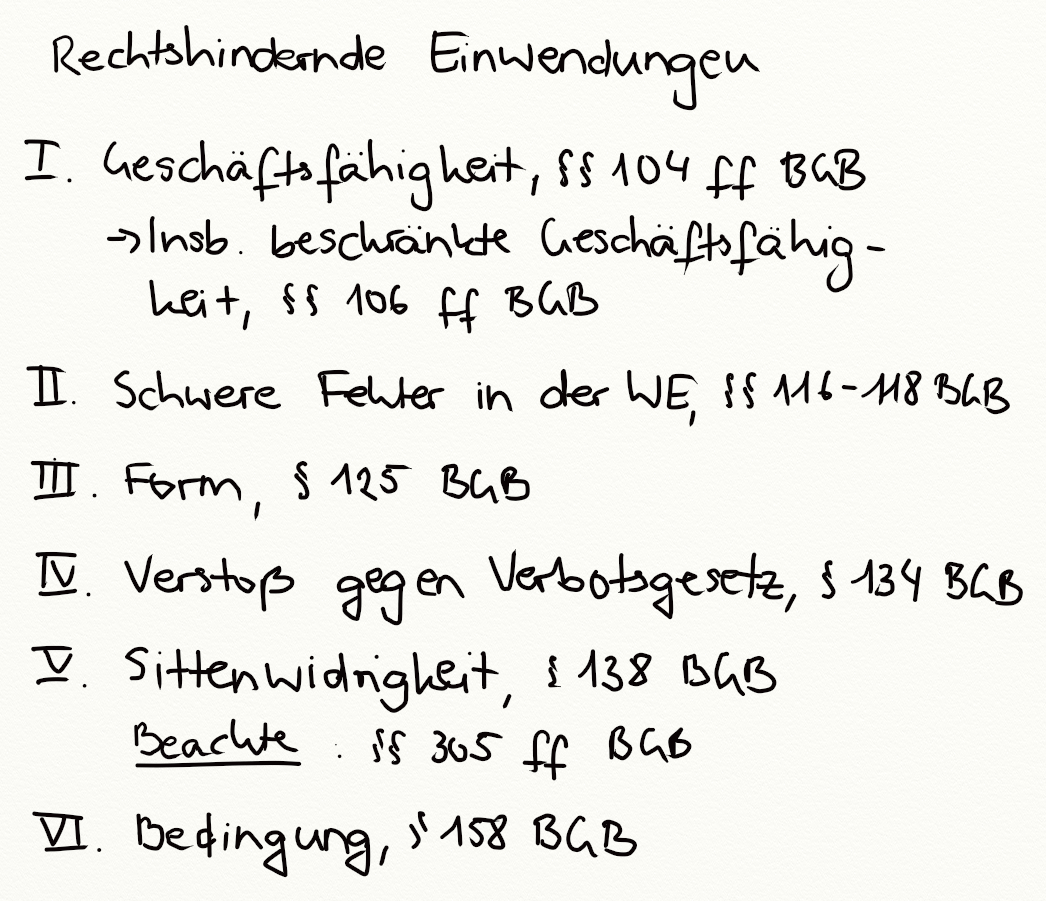 Rechtshindernde Einwendungen
I. Geschäftsfähigkeit, §§ 104 ff BGB
→ Insb. beschränkte Geschäftsfähig-
keit, §§ 106 ff BGB
II. Schwere Fehler in der WE, §§ 116-118 BGB
III. Form, § 125 BGB
IV. Verstoß gegen Verbotsgesetz, § 134 BGB
V. Sittenwidrigkeit, § 138 BGB
Beachte : §§ 305 ff BGB
VI. Bedingung, § 158 BGB